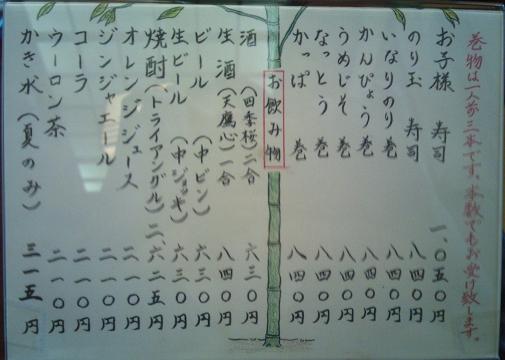 巻物は一人前三本です。本数でもお受け致します。
お子様 寿司 一、〇五〇円
のり玉 寿司 八四〇円
いなりのり巻 八四〇円
かんぴょう巻 八四〇円
うめじそ 巻 八四〇円
なっとう 巻 八四〇円
かっぱ 巻 八四〇円
お飲み物
酒 (四季桜)二合 六三〇円
生酒 (天鷹心)一合 八四〇円
ビール (中ビン) 六三〇円
生ビール (中ジョッキ) 六三〇円
焼酎 (トライアングル) 二、六二五円
オレンジジュース 二一〇円
ジンジャエール 二一〇円
コーラ 二一〇円
ウーロン茶 二一〇円
かき氷 (夏のみ) 三一五円